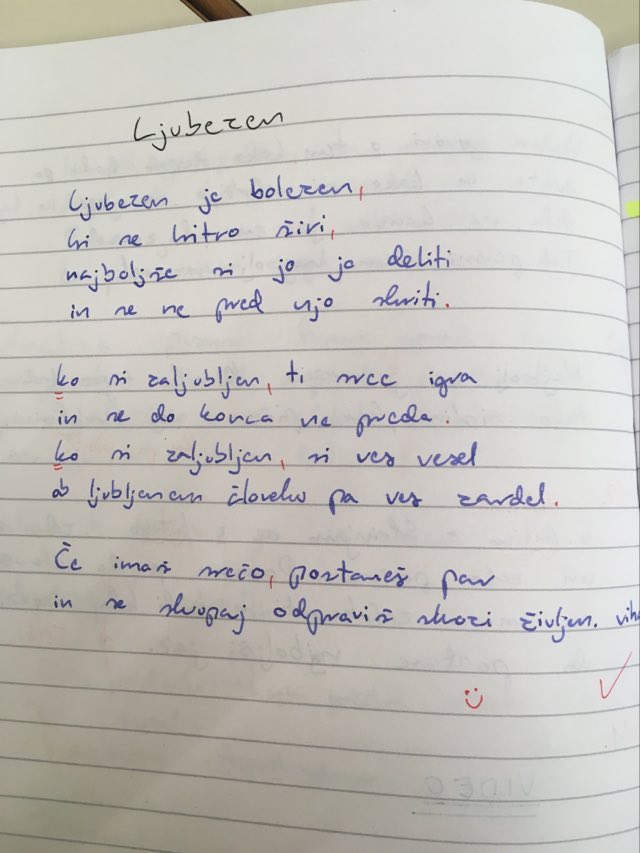 Ljubezen
Ljubezen je bolezen,
ki se hitro širi,
najboljše si jo je deliti
in se ne pred njo skriti.
ko si zaljubljen, ti srce igra
in se do konca ne preda.
ko si zaljubljen, si ves vesel
ob ljubljenem človeku pa ves zardel.
Če imaš srečo, postaneš par
in se skupaj odpraviš skozi življen. viha
VIDEO